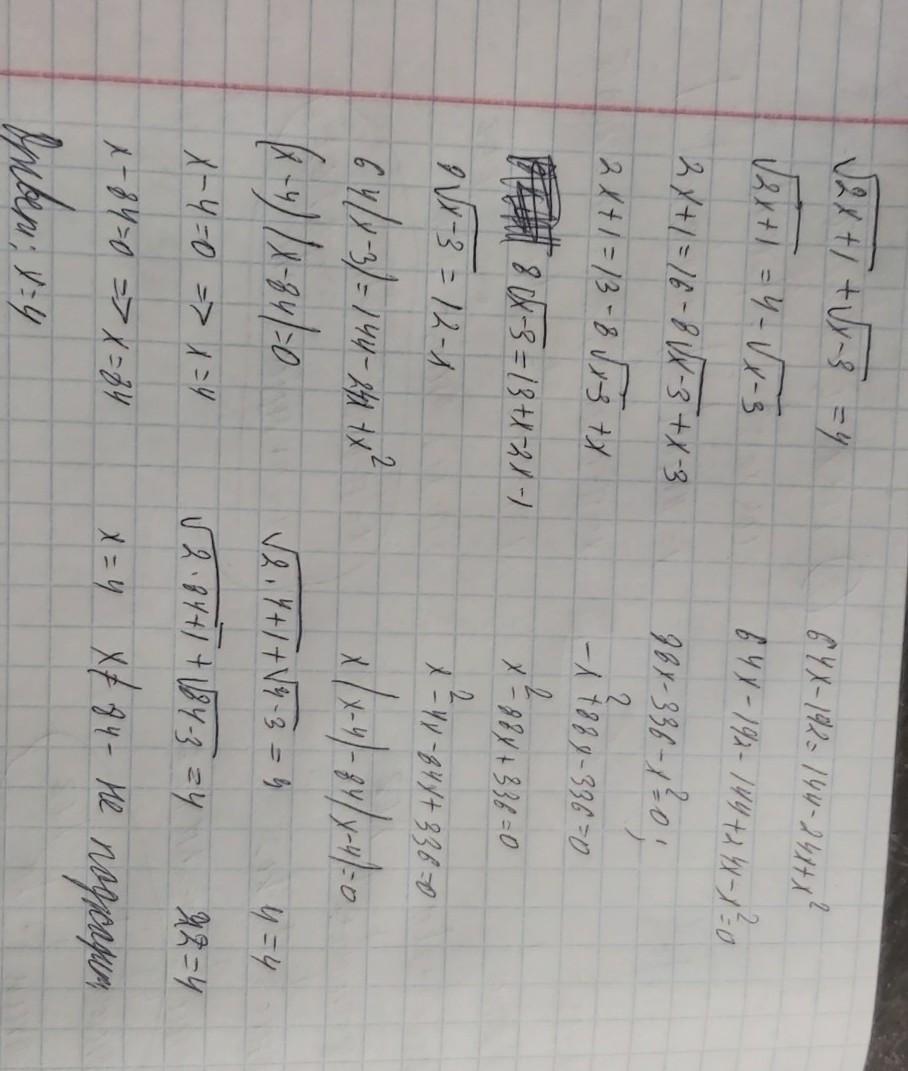 √2x+1 + √x-3 = 4
√2x+1 = 4 - √x-3
2x+1 = 16 - 8√x-3 + x-3
2x+1 = 13 - 8√x-3 + x
8√x-3 = 13+x-2x-1
8√x-3 = 12-x
64(x-3) = 144 - 24x + x²
(x-4)(x-84)=0
x-4=0 => x=4
x-84=0 => x=84
Ответ: x=4
64x-192=144-24x+x²
64x-192-144+24x-x²=0
88x-336-x²=0;
-x²+88x-336=0
x²-88x+336=0
x²-4x-84x+336=0
x(x-4)-84(x-4)=0
√2·4+1+√4-3=4 4=4
√2·84+1+√84-3=4 22=4
x=4 x≠84- не подходит